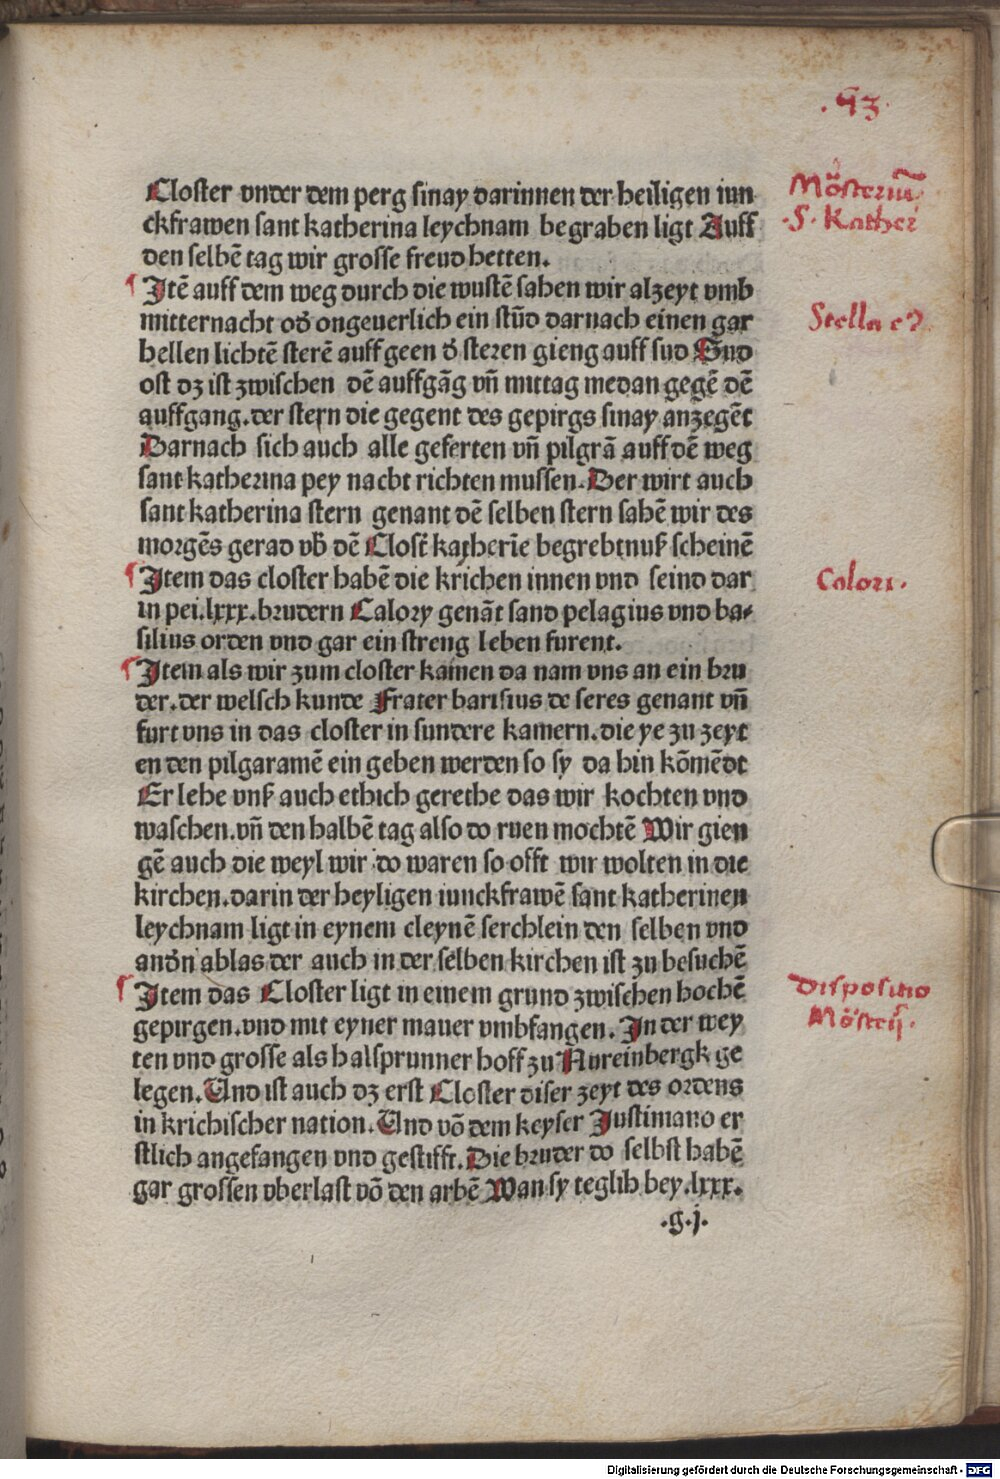 .43.
Closter vnder dem perg sinay darinnen der heiligen iun
ckfrawen sant katherina leychnam begraben ligt Auff
den selbē tag wir grosse freud hetten.
Mōsteriū
.S. Kather
¶ Itē auff dem weg durch die wustē sahen wir alzeyt vmb
mitternacht od̄ ongeuerlich ein stūd darnach einen gar
hellen lichtē sterē auff geen d̄ steren gieng auff sud Sud
ost dz ist zwischen dē auffgāg vn̄ mittag medan gegē dē
auffgang. der stern die gegent des gepirgs sinay anzegēt
Darnach sich auch alle geferten vn̄ pilgrā auff dē weg
sant katherina pey nacht richten mussen. Der wirt auch
sant katherina stern genant dē selben stern sahē wir des
morgēs gerad vb̄ dē Clost̄ katherīe begrebtnuß scheinē
Stella
¶ Item das closter habē die krichen innen vnd seind dar
in pei .lxxx. brudern Calory genāt sand pelagius vnd ba⸗
silius orden vnd gar ein streng leben furent.
Calori.
¶ Item als wir zum closter kamen da nam vns an ein bru
der. der welsch kunde Frater barisius de seres genant vn̄
furt vns in das closter in sundere kamern. die ye zu zeyt
en den pilgaramē ein geben werden so sy da hin kōmēdt
Er lehe vnß auch ethich gerethe das wir kochten vnd
waschen. vn̄ den halbē tag also do ruen mochtē Wir gien
gē auch die weyl wir do waren so offt wir wolten in die
kirchen. darin der heyligen iunckfrawē sant katherinen
leychnam ligt in eynem cleynē serchlein den selben vnd
and̄n ablas der auch in der selben kirchen ist zu besuchē
¶ Item das Closter ligt in einem grund zwischen hochē
gepirgen. vnd mit eyner mauer vmbfangen. In der wey
ten vnd grosse als halsprunner hoff zu Nureinbergk ge
legen. Und ist auch dz erst Closter diser zeyt des ordens
in krichischer nation. Und vō dem keyser Justimano er
stlich angefangen vnd gestifft. Die bruder do selbst habē
gar grossen vberlast vō den arbē Wan sy teglih bey .lxxx.
Dispositio
Mōsterij.
.g.j.
Digitalisierung gefördert durch die Deutsche Forschungsgemeinschaft - DFG